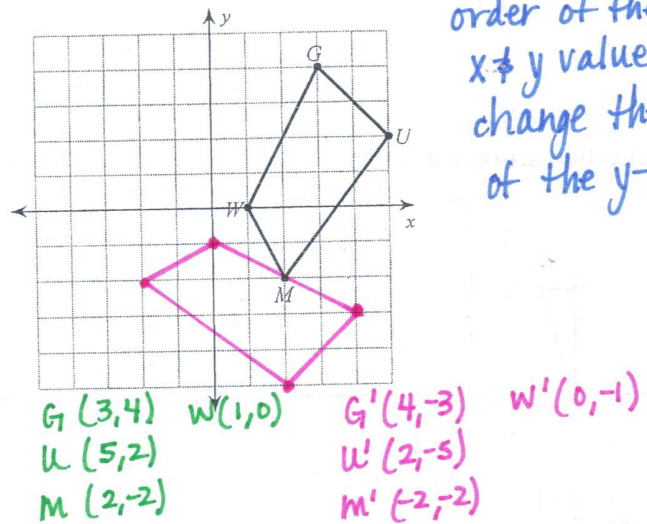 order of the
x & y value
change th
of the y-
y
G
U
W
x
M
G (3,4) W(1,0) G'(4,-3) W'(0,-1)
U (5,2) U'(2,-5)
M (2,-2) M'(-2,-2)